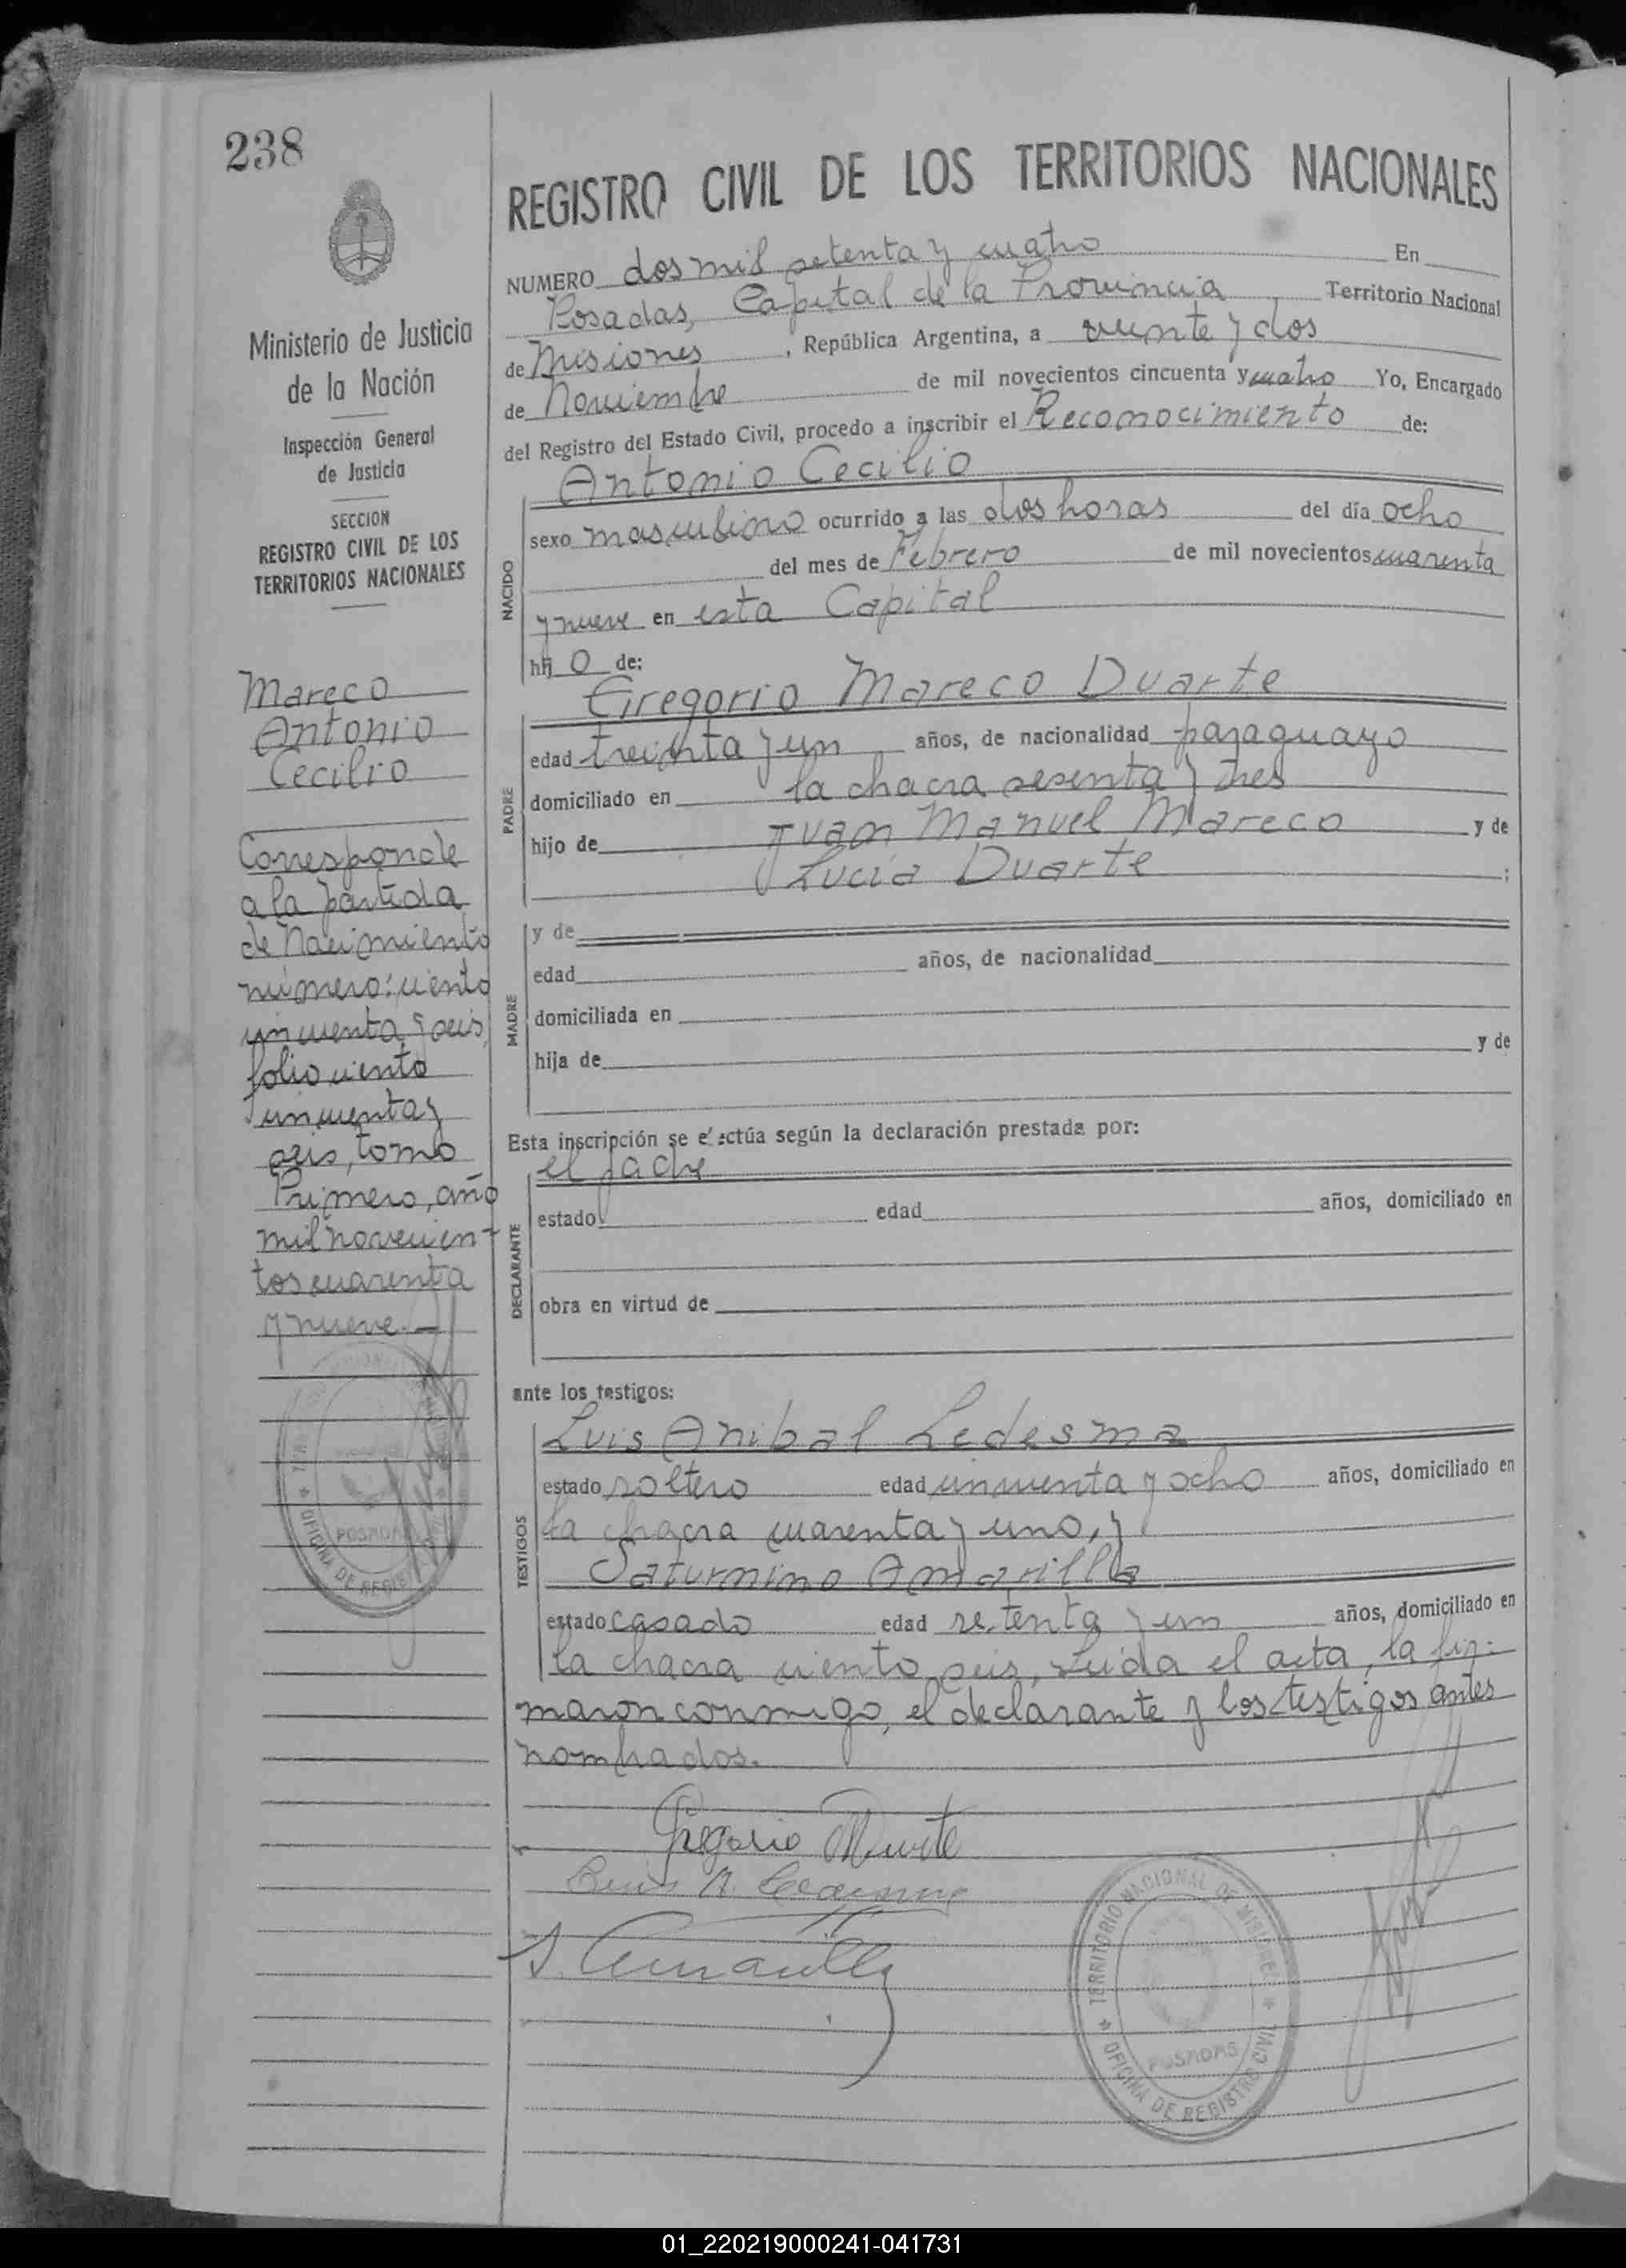 238
REGISTRO CIVIL DE LOS TERRITORIOS NACIONALES
Ministerio de Justicia
de la Nación
Inspección General
de Justicia
SECCION
REGISTRO CIVIL DE LOS
TERRITORIOS NACIONALES
Mareco
Antonio
Cecilio
Corresponde
a la partida
de Nacimiento
número: ciento
cincuenta y seis,
folio ciento
cincuenta y
seis, tomo
Primero, año
mil novecien-
tos cuarenta
y nueve.-
NUMERO dos mil setenta y cuatro En
Posadas, Capital de la Provincia Territorio Nacional
de Misiones, República Argentina, a veinte y dos
de Noviembre de mil novecientos cincuenta y cuatro Yo, Encargado
del Registro del Estado Civil, procedo a inscribir el Reconocimiento de:
Antonio Cecilio
NACIDO
sexo masculino ocurrido a las dos horas del día ocho
del mes de Febrero de mil novecientos cuarenta
y nueve en esta Capital
hijo de:
Gregorio Mareco Duarte
PADRE
edad treinta y un años, de nacionalidad paraguayo
domiciliado en la chacra sesenta y tres
hijo de Juan Manuel Mareco y de
Lucía Duarte;
MADRE
y de
edad años, de nacionalidad
domiciliada en
hija de y de
Esta inscripción se efectúa según la declaración prestada por:
el padre
DECLARANTE
estado edad años, domiciliado en
obra en virtud de
ante los testigos:
TESTIGOS
Luis Anibal Ledesma
estado soltero edad cincuenta y ocho años, domiciliado en
la chacra cuarenta y uno, y
Saturnino Amarilla
estado casado edad setenta y un años, domiciliado en
la chacra ciento seis, Leida el acta, la fir-
maron conmigo, el declarante y los testigos antes
nombrados.
Gregorio Duarte
Luis A. Ledesma
S. Amarilla
TERRITORIO NACIONAL DE MISIONES
POSADAS
OFICINA DE REGISTRO CIVIL
POSADAS
OFICINA DE REGISTRO CIVIL
01_220219000241-041731